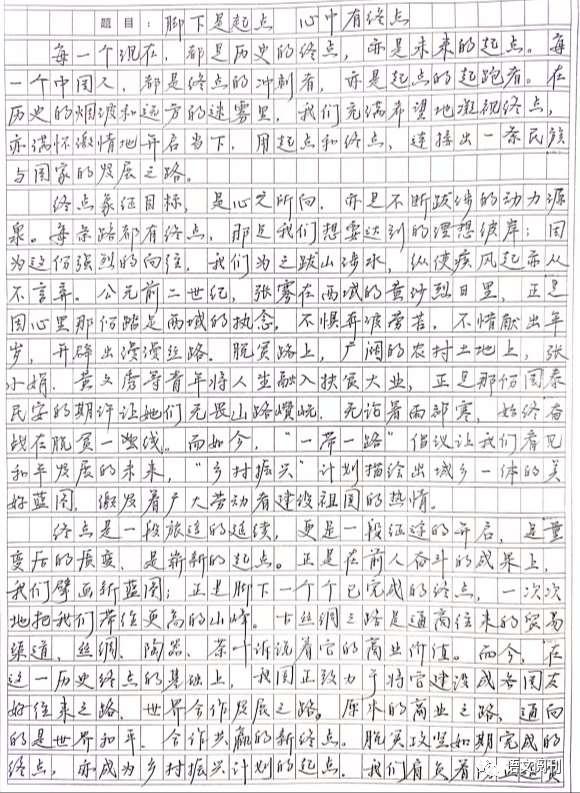 题目：脚下是起点 心中有终点
每一个现在，都是历史的终点，亦是未来的起点。每
一个中国人，都是终点的冲刺者，亦是起点的起跑者。在
历史的烟波和远方的迷雾里，我们充满希望地凝视终点，
亦满怀激情地开启当下，用起点和终点，连接出一条民族
与国家的发展之路。
终点象征目标，是心之所向，亦是不断跋涉的动力源
泉。每条路都有终点，那是我们想要达到的理想彼岸；因
为这份强烈的向往，我们为之跋山涉水，纵使疾风起亦从
不言弃。公元前二世纪，张骞在西域的黄沙烈日里，正是
因心里那份踏足西域的执念，不惧奔波劳苦，不惜献出年
岁，开辟出漫漫丝路。脱贫路上，广阔的农村土地上，张
小娟、黄文秀等青年将人生融入扶贫大业，正是那份国泰
民安的期许让她们无畏山路崎岖，无论暑雨祁寒，始终奋
战在脱贫一线。而如今，“一带一路”倡议让我们看见
和平发展的未来，“乡村振兴”计划描绘出城乡一体的美
好蓝图，激发着广大劳动者建设祖国的热情。
终点是一段旅途的延续，更是一段征途的开启，是量
变后的质变，是崭新的起点。正是在前人奋斗的成果上，
我们擘画新蓝图；正是脚下一个个已完成的终点，一次次
地把我们带往更高的山峰。古丝绸之路是通商往来的贸易
渠道，丝绸、陶器、茶叶诉说着它的商业价值。而今，在
这一历史终点的基础上，我国正致力于将它建设成各国友
好往来之路，世界合作发展之路。原来的商业之路，通向
的是世界和平、合作共赢的新终点。脱贫攻坚如期完成的
终点，亦成为乡村振兴计划的起点。我们肩负着
语文周刊